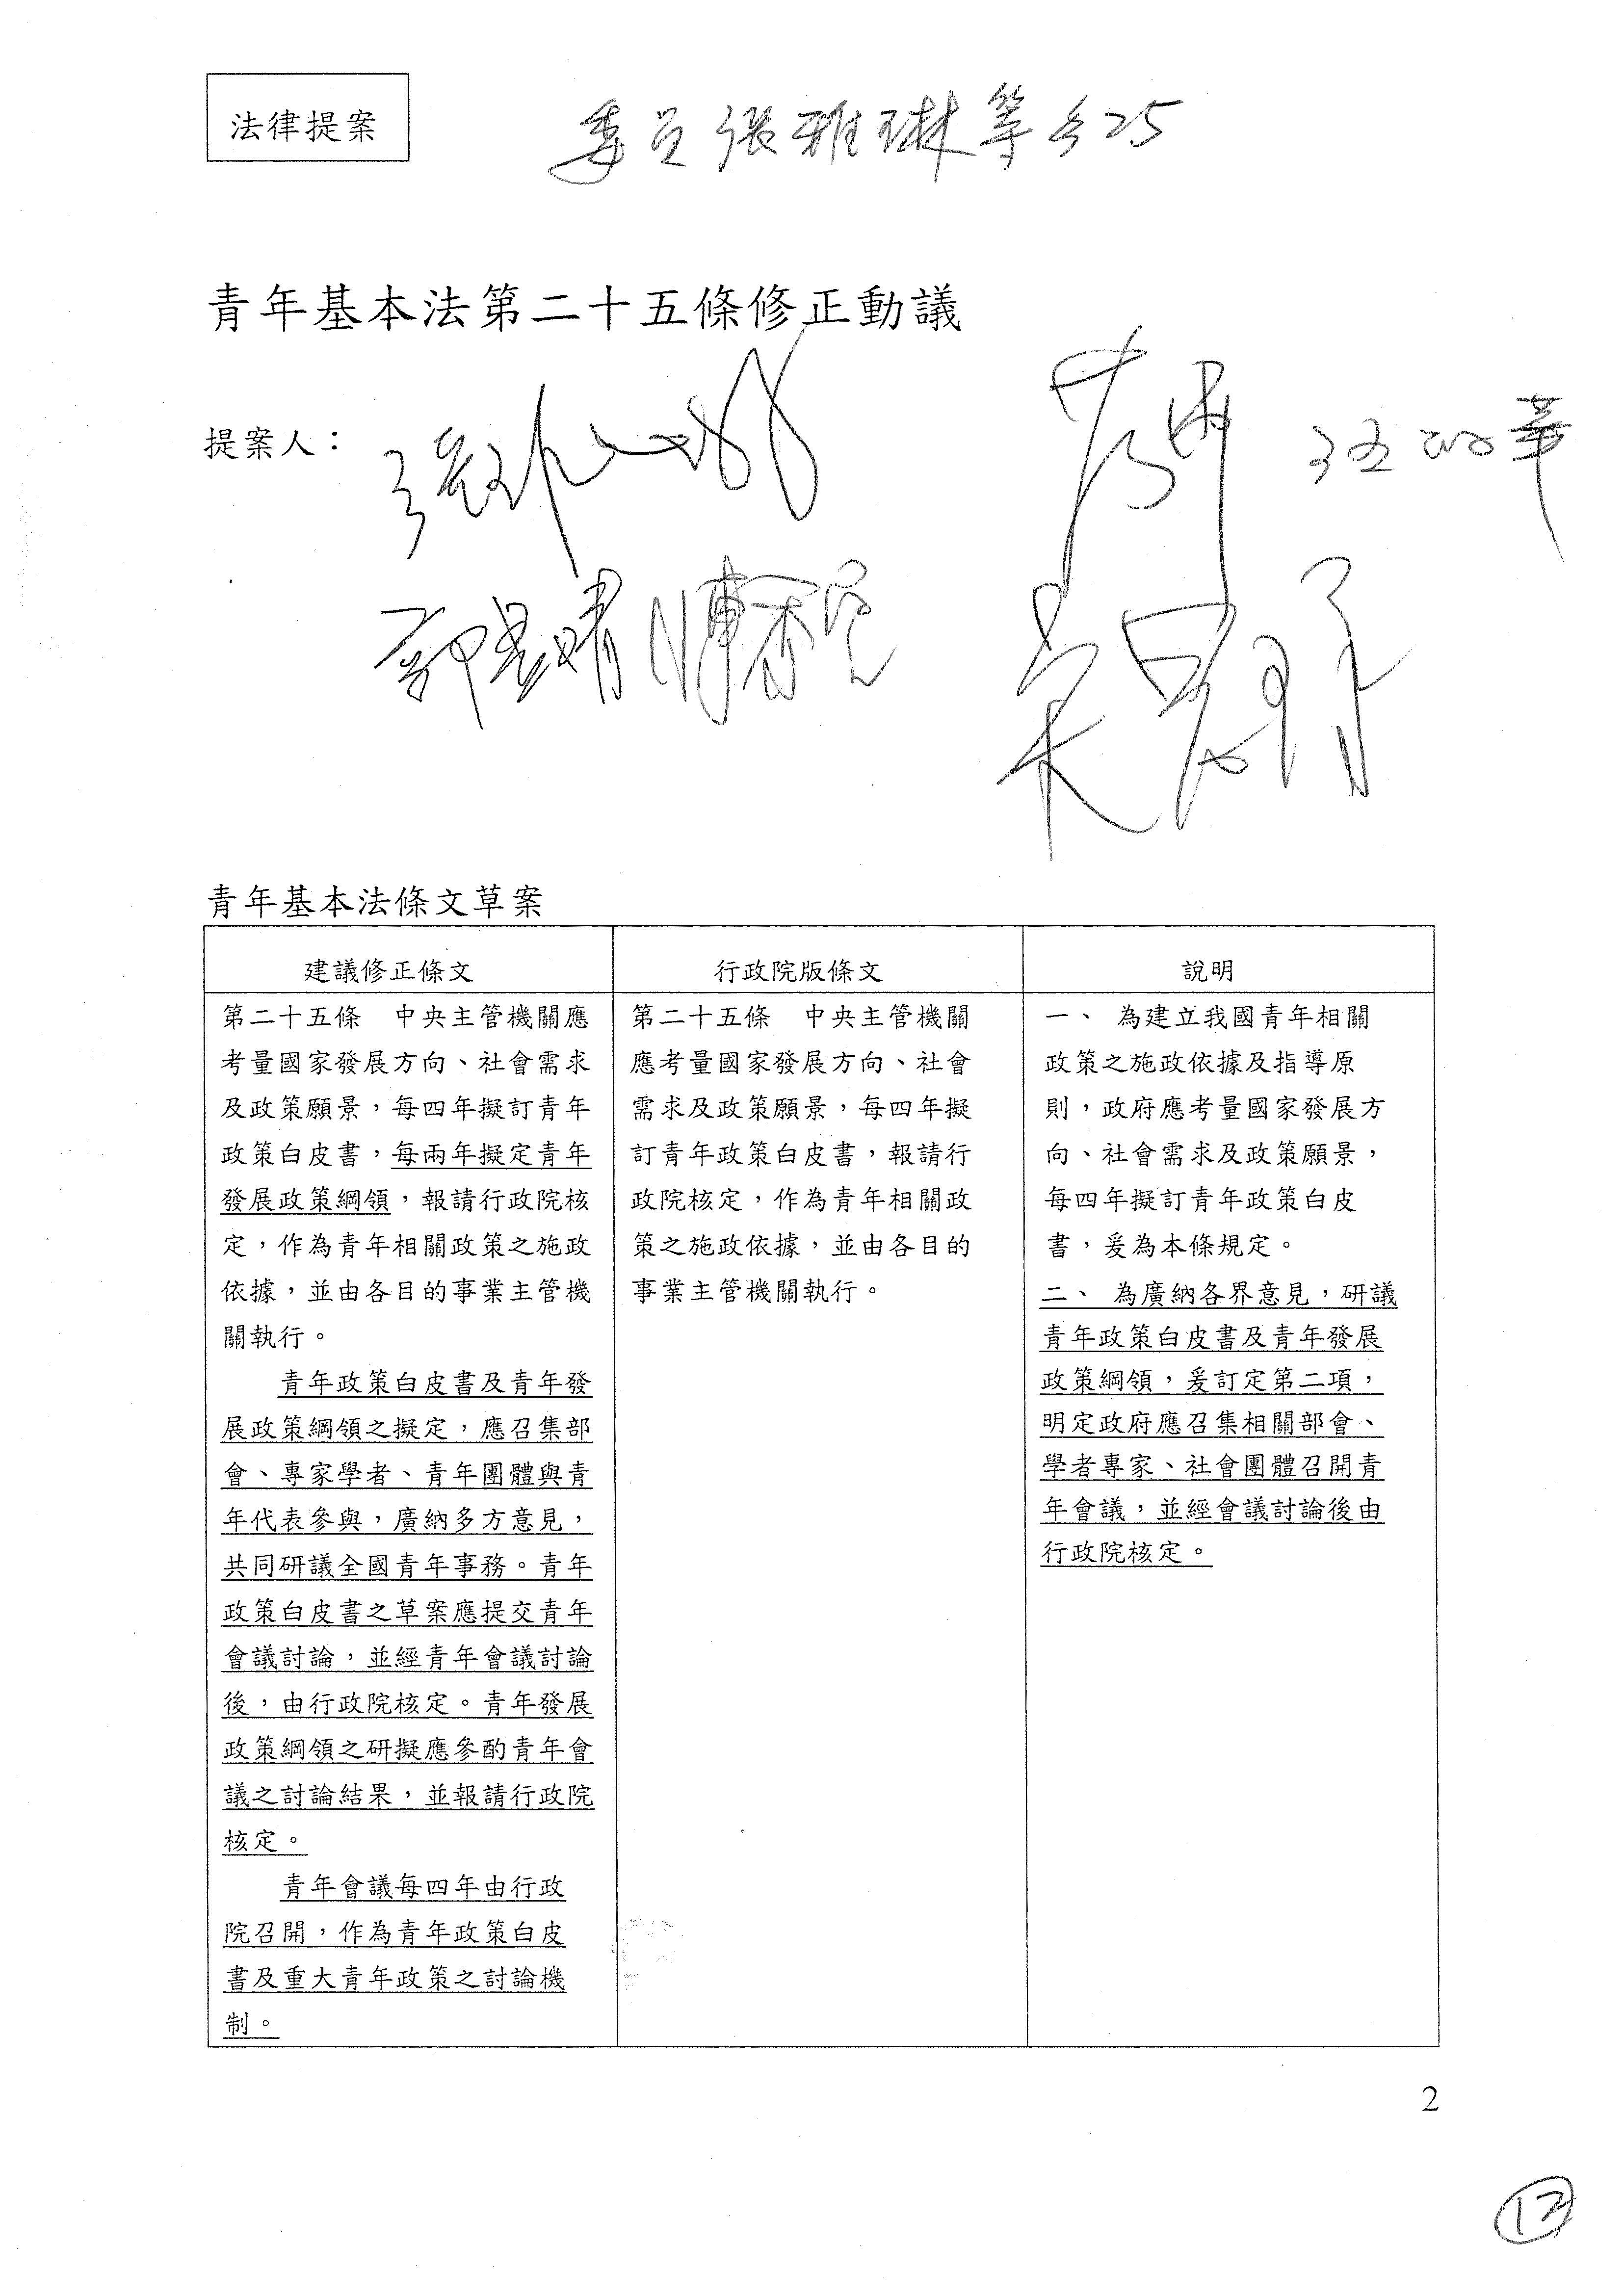 法律提案
委員張雅琳等 25
青年基本法第二十五條修正動議
提案人：
范雲
郭昱晴
陳秀寳
吳思瑤
青年基本法條文草案
建議修正條文
第二十五條　中央主管機關應
考量國家發展方向、社會需求
及政策願景，每四年擬訂青年
政策白皮書，每兩年擬定青年
發展政策綱領，報請行政院核
定，作為青年相關政策之施政
依據，並由各目的事業主管機
關執行。
青年政策白皮書及青年發
展政策綱領之擬定，應召集部
會、專家學者、青年團體與青
年代表參與，廣納多方意見，
共同研議全國青年事務。青年
政策白皮書之草案應提交青年
會議討論，並經青年會議討論
後，由行政院核定。青年發展
政策綱領之研擬應參酌青年會
議之討論結果，並報請行政院
核定。
青年會議每四年由行政
院召開，作為青年政策白皮
書及重大青年政策之討論機
制。
行政院版條文
第二十五條　中央主管機關
應考量國家發展方向、社會
需求及政策願景，每四年擬
訂青年政策白皮書，報請行
政院核定，作為青年相關政
策之施政依據，並由各目的
事業主管機關執行。
說明
一、 為建立我國青年相關
政策之施政依據及指導原
則，政府應考量國家發展方
向、社會需求及政策願景，
每四年擬訂青年政策白皮
書，爰為本條規定。
二、 為廣納各界意見，研議
青年政策白皮書及青年發展
政策綱領，爰訂定第二項，
明定政府應召集相關部會、
學者專家、社會團體召開青
年會議，並經會議討論後由
行政院核定。
2